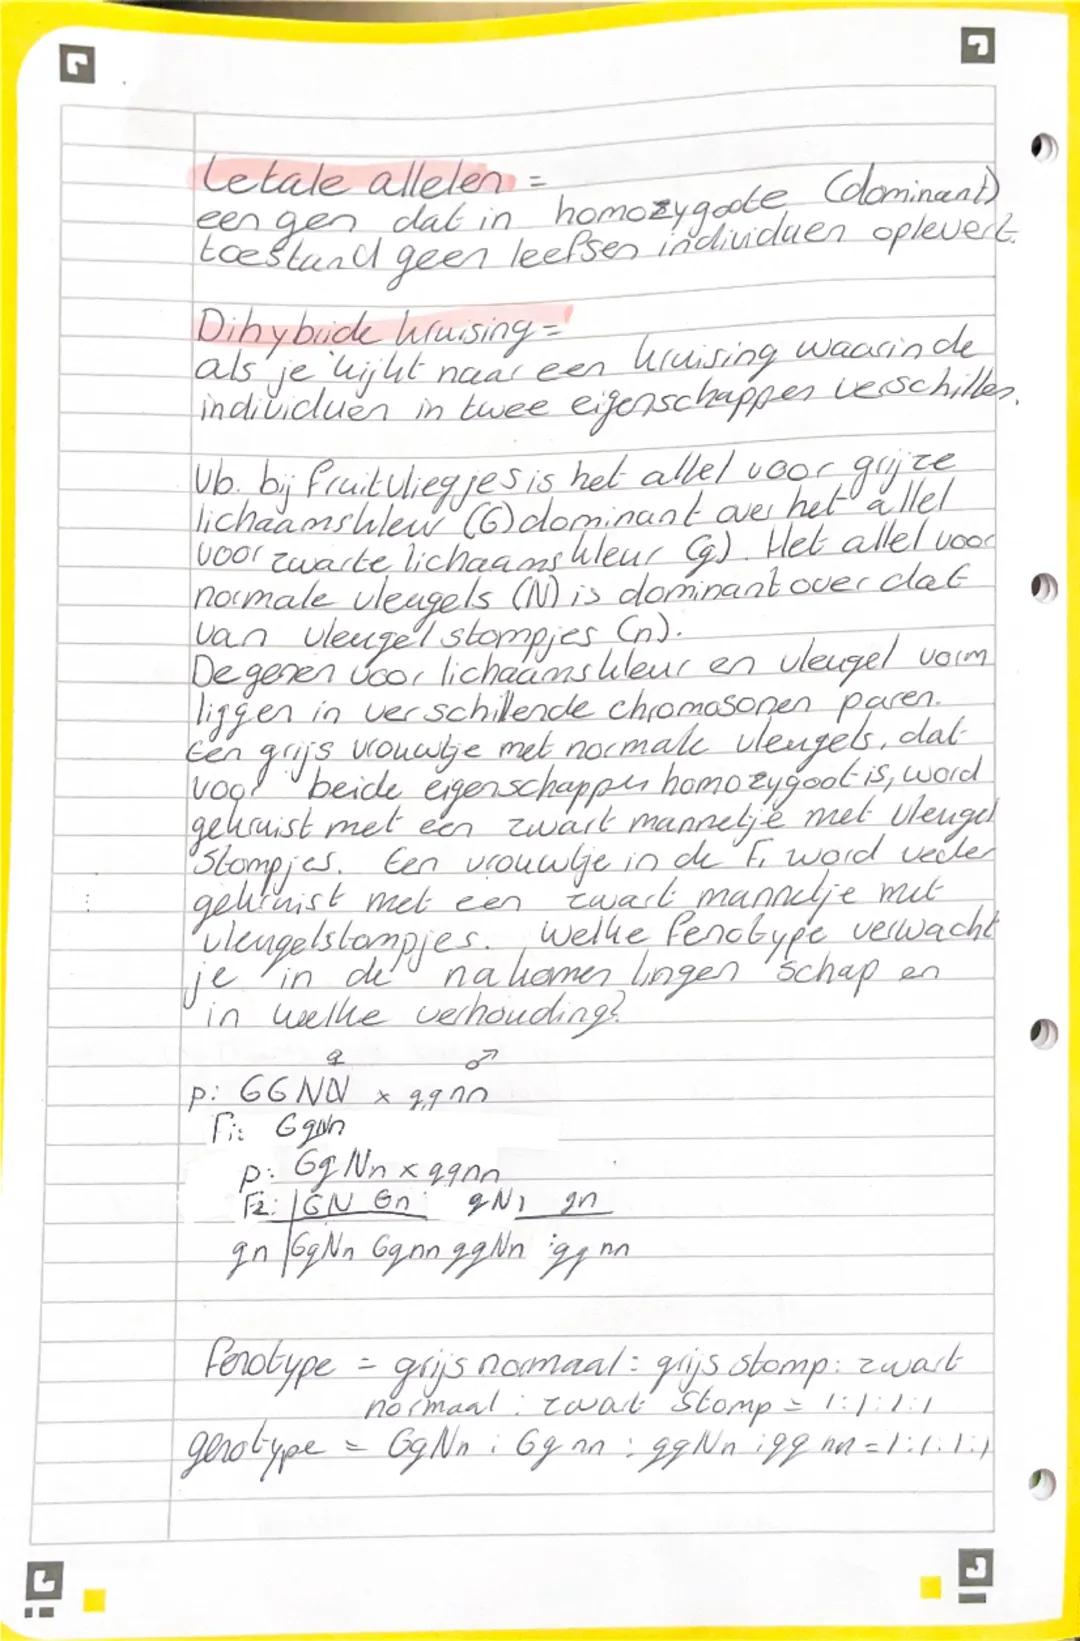 Letale allelen =
een gen dat in homozygoote (dominant)
toestand geen leefsen individuen oplevert.
Dihybride kruising =
als je kijkt naar een kruising waarin de
individuen in twee eigenschappen verschillen.
Vb. bij fruitvliegjes is het allel voor grijze
lichaamskleur (G) dominant over het allel
voor zwarte lichaamskleur (g). Het allel voor
normale vleugels (N) is dominant over dat
van vleugelstompjes (n).
De genen voor lichaamskleur en vleugel vorm
liggen in verschillende chromosonen paren.
Een grijs vrouwtje met normale vleugels, dat
voor beide eigenschappen homozygoot is, word
gekruist met een zwart mannetje met vleugel
stompjes. Een vrouwtje in de F1 word veder
gekruist met een zwart mannetje met
vleugelstompjes. Welke fenotype verwacht
je in de nakomenlingen schap en
in welke verhouding?
♀ ♂
P: GGNN x ggnn
F1: GgNn
P: GgNn x ggnn
F2: GN Gn gN gn
gn GgNn Ggnn ggNn ggnn
fenotype = grijs normaal : grijs stomp : zwart
normaal : zwart stomp = 1:1:1:1
genotype = GgNn : Ggnn : ggNn : ggnn = 1:1:1:1